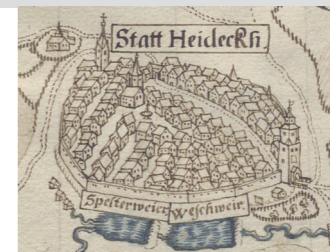 Statt Heideckh.
Spelterweier Weschweir.